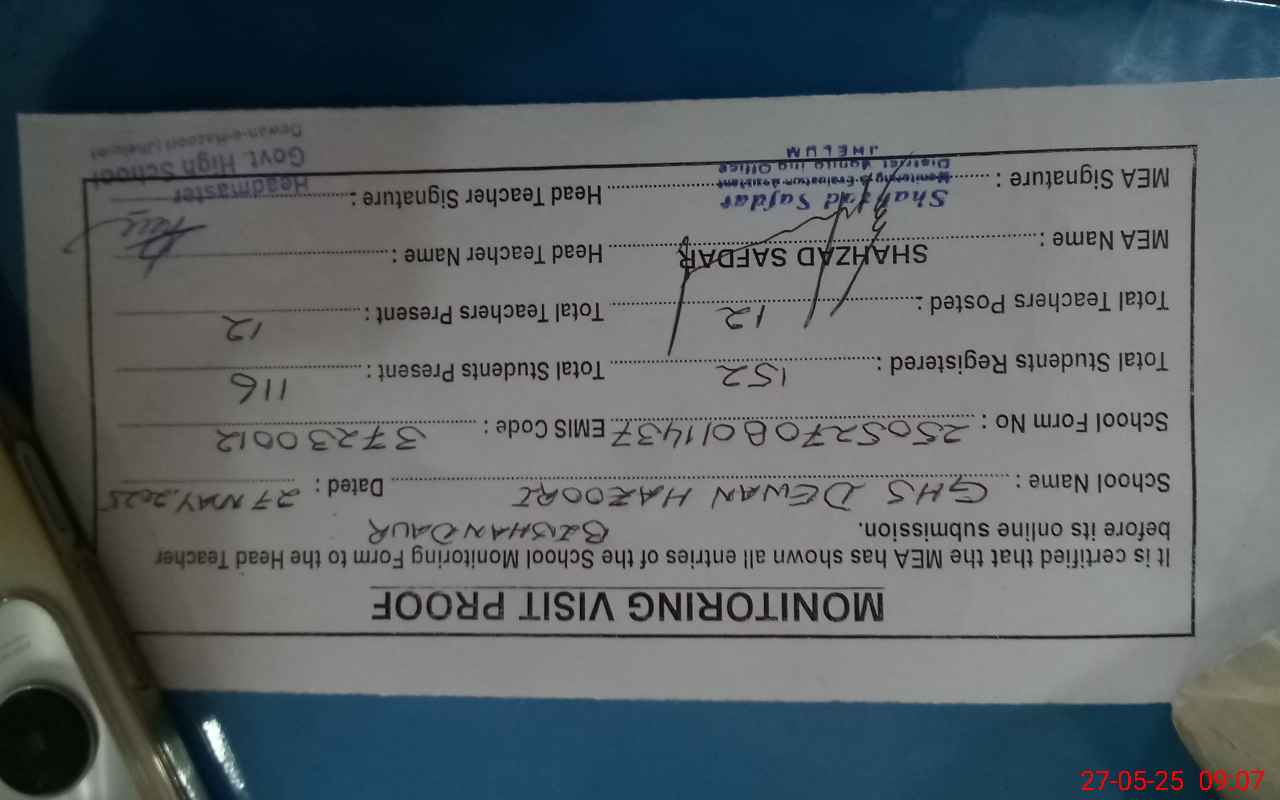 MONITORING VISIT PROOF
It is certified that the MEA has shown all entries of the School Monitoring Form to the Head Teacher
before its online submission. BISHANDAUR
School Name : GHS DEWAN HAZOORI Dated : 27 MAY, 2025
School Form No : 250527080111437 EMIS Code : 37230012
Total Students Registered : 152 Total Students Present : 116
Total Teachers Posted : 12 Total Teachers Present : 12
MEA Name : SHAHZAD SAFDAR Head Teacher Name :
MEA Signature : Shahzad Safdar Head Teacher Signature : Headmaster
Monitoring & Evaluation Assistant Govt. High School
District Monitoring Office Dewan-e-Hazoori (Jhelum)
JHELUM
27-05-25 09:07